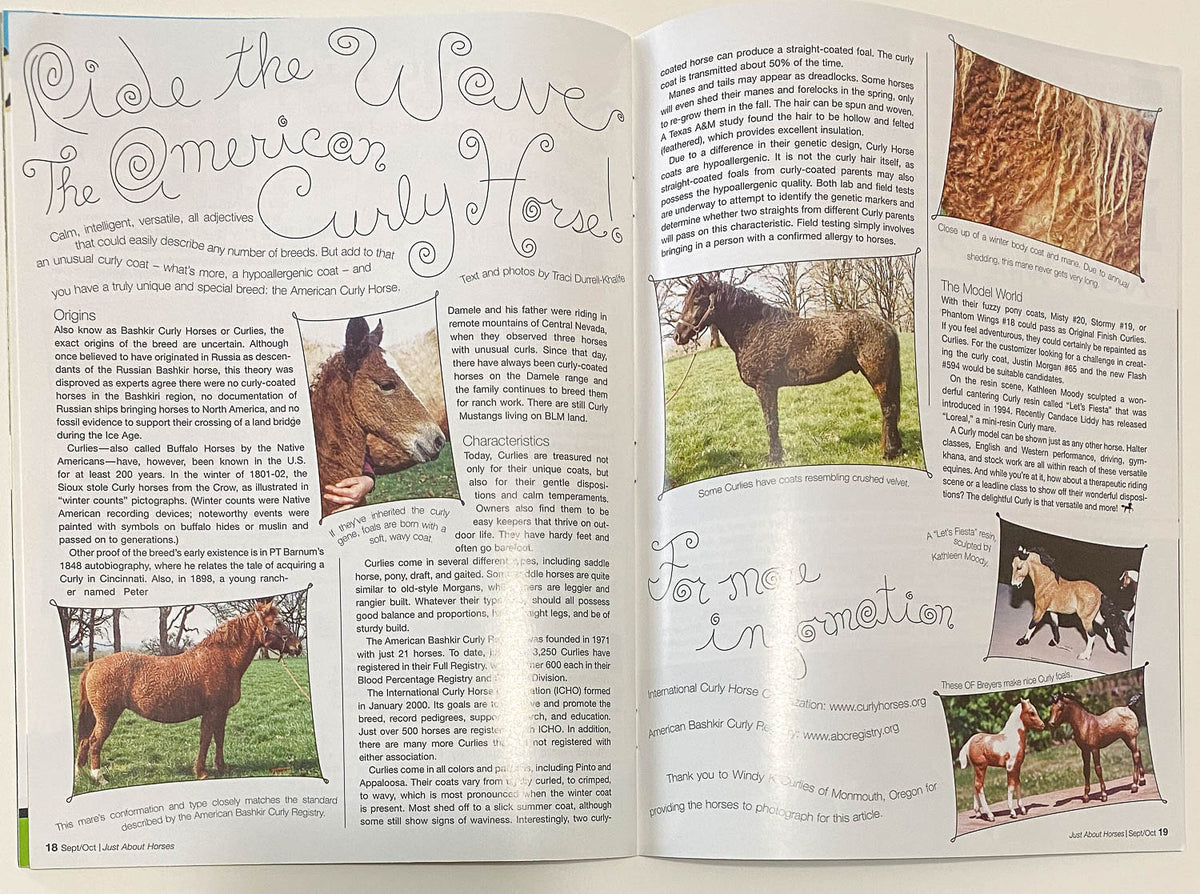 Ride the Wave
The American
Curly Horse!
Calm, intelligent, versatile, all adjectives
that could easily describe any number of breeds. But add to that
an unusual curly coat – what's more, a hypoallergenic coat – and
you have a truly unique and special breed: the American Curly Horse.
Text and photos by Traci Durrell-Khalife
Origins
Also know as Bashkir Curly Horses or Curlies, the
exact origins of the breed are uncertain. Although
once believed to have originated in Russia as descen-
dants of the Russian Bashkir horse, this theory was
disproved as experts agree there were no curly-coated
horses in the Bashkiri region, no documentation of
Russian ships bringing horses to North America, and no
fossil evidence to support their crossing of a land bridge
during the Ice Age.
Curlies—also called Buffalo Horses by the Native
Americans—have, however, been known in the U.S.
for at least 200 years. In the winter of 1801-02, the
Sioux stole Curly horses from the Crow, as illustrated in
"winter counts" pictographs. (Winter counts were Native
American recording devices; noteworthy events were
painted with symbols on buffalo hides or muslin and
passed on to generations.)
Other proof of the breed's early existence is in PT Barnum's
1848 autobiography, where he relates the tale of acquiring a
Curly in Cincinnati. Also, in 1898, a young ranch-
er named Peter
This mare's conformation and type closely matches the standard
described by the American Bashkir Curly Registry.
If they've inherited the curly
gene, foals are born with a
soft, wavy coat.
Damele and his father were riding in
remote mountains of Central Nevada,
when they observed three horses
with unusual curls. Since that day,
there have always been curly-coated
horses on the Damele range and
the family continues to breed them
for ranch work. There are still Curly
Mustangs living on BLM land.
Characteristics
Today, Curlies are treasured not
only for their unique coats, but
also for their gentle disposi-
tions and calm temperaments.
Owners also find them to be
easy keepers that thrive on out-
door life. They have hardy feet and
often go barefoot.
Curlies come in several different types, including saddle
horse, pony, draft, and gaited. Some saddle horses are quite
similar to old-style Morgans, while others are leggier and
rangier built. Whatever their type, should all possess
good balance and proportions, straight legs, and be of
sturdy build.
The American Bashkir Curly Registry was founded in 1971
with just 21 horses. To date, 3,250 Curlies have
registered in their Full Registry, 600 each in their
Blood Percentage Registry and Division.
The International Curly Horse Organization (ICHO) formed
in January 2000. Its goals are to and promote the
breed, record pedigrees, support research, and education.
Just over 500 horses are registered with ICHO. In addition,
there are many more Curlies that not registered with
either association.
Curlies come in all colors and patterns, including Pinto and
Appaloosa. Their coats vary from tightly curled, to crimped,
to wavy, which is most pronounced when the winter coat
is present. Most shed off to a slick summer coat, although
some still show signs of waviness. Interestingly, two curly-
18 Sept/Oct | Just About Horses
coated horse can produce a straight-coated foal. The curly
coat is transmitted about 50% of the time.
Manes and tails may appear as dreadlocks. Some horses
will even shed their manes and forelocks in the spring, only
to re-grow them in the fall. The hair can be spun and woven.
A Texas A&M study found the hair to be hollow and felted
(feathered), which provides excellent insulation.
Due to a difference in their genetic design, Curly Horse
coats are hypoallergenic. It is not the curly hair itself, as
straight-coated foals from curly-coated parents may also
possess the hypoallergenic quality. Both lab and field tests
are underway to attempt to identify the genetic markers and
determine whether two straights from different Curly parents
will pass on this characteristic. Field testing simply involves
bringing in a person with a confirmed allergy to horses.
Some Curlies have coats resembling crushed velvet.
Close up of a winter body coat and mane. Due to annual
shedding, this mane never gets very long.
The Model World
With their fuzzy pony coats, Misty #20, Stormy #19, or
Phantom Wings #18 could pass as Original Finish Curlies.
If you feel adventurous, they could certainly be repainted as
Curlies. For the customizer looking for a challenge in creat-
ing the curly coat, Justin Morgan #65 and the new Flash
#594 would be suitable candidates.
On the resin scene, Kathleen Moody sculpted a won-
derful cantering Curly resin called "Let's Fiesta" that was
introduced in 1994. Recently Candace Liddy has released
"Loreal," a mini-resin Curly mare.
A Curly model can be shown just as any other horse. Halter
classes, English and Western performance, driving, gym-
khana, and stock work are all within reach of these versatile
equines. And while you're at it, how about a therapeutic riding
scene or a leadline class to show off their wonderful disposi-
tions? The delightful Curly is that versatile and more!
A "Let's Fiesta" resin,
sculpted by
Kathleen Moody.
These OF Breyers make nice Curly foals.
For more
information
International Curly Horse Organization: www.curlyhorses.org
American Bashkir Curly Registry: www.abcregistry.org
Thank you to Windy K Curlies of Monmouth, Oregon for
providing the horses to photograph for this article.
Just About Horses | Sept/Oct 19